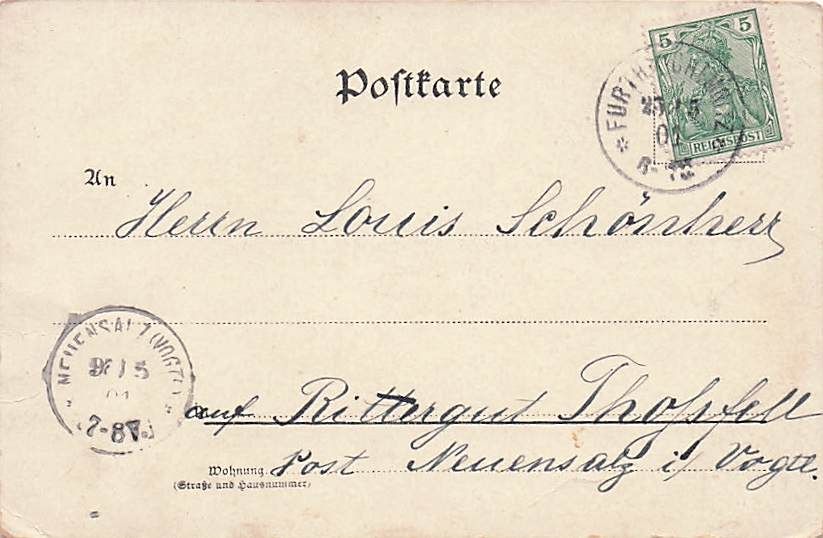 Postkarte
5 5
REICHSPOST
FURTH
01
An
Herrn Louis Schönherr
NEUENSALZ (VOGTL)
5
01
7-8V.
auf Rittergut Thoßfell
Wohnung Post Neuensalz i/ Vogtl.
(Straße und Hausnummer)